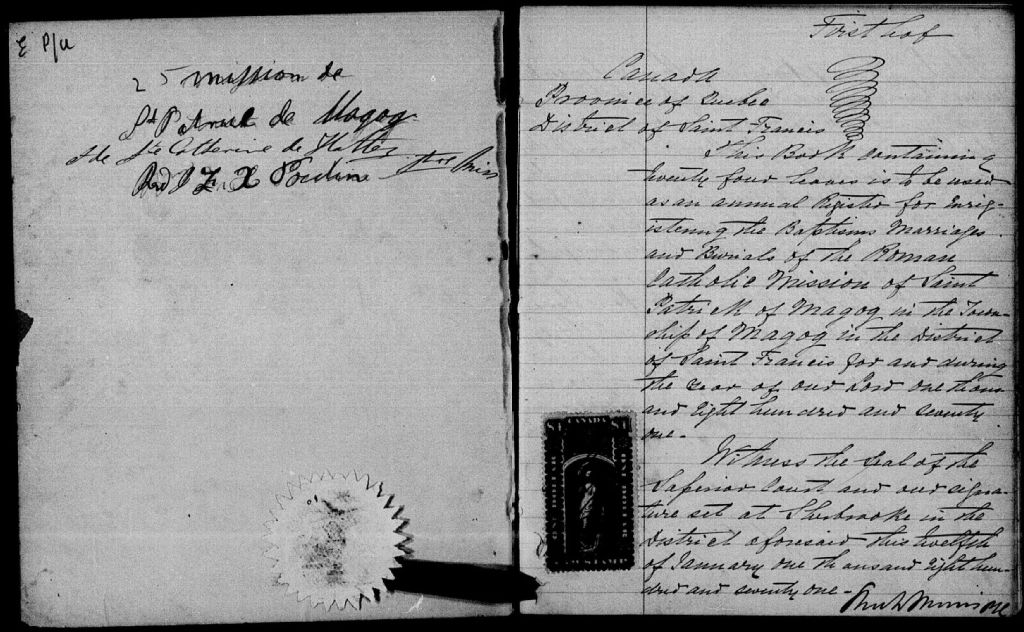 E P/u
25 mission de
St Patrick de Magog
Ste Catherine de Hatley
Rvd J
First
Canada
Province of Quebec
District of Saint Francis
This Book containing
twenty four leaves is to be used
as an annual Register for Enrig-
istering the Baptisms Marriages
and Burials of the Roman
Catholic Mission of Saint
Patrick of Magog in the Town-
ship of Magog in the District
of Saint Francis for and during
the Year of our Lord one thous
and Eight hundred and seventy
one-
Witness the Seal of the
Superior Court and our signa-
ture set at Sherbrooke in the
District aforesaid this twelfth
of January one thousand Eight hun-
dred and seventy one-
$1 CANADA $1
ONE DOLLAR
ONE DOLLAR